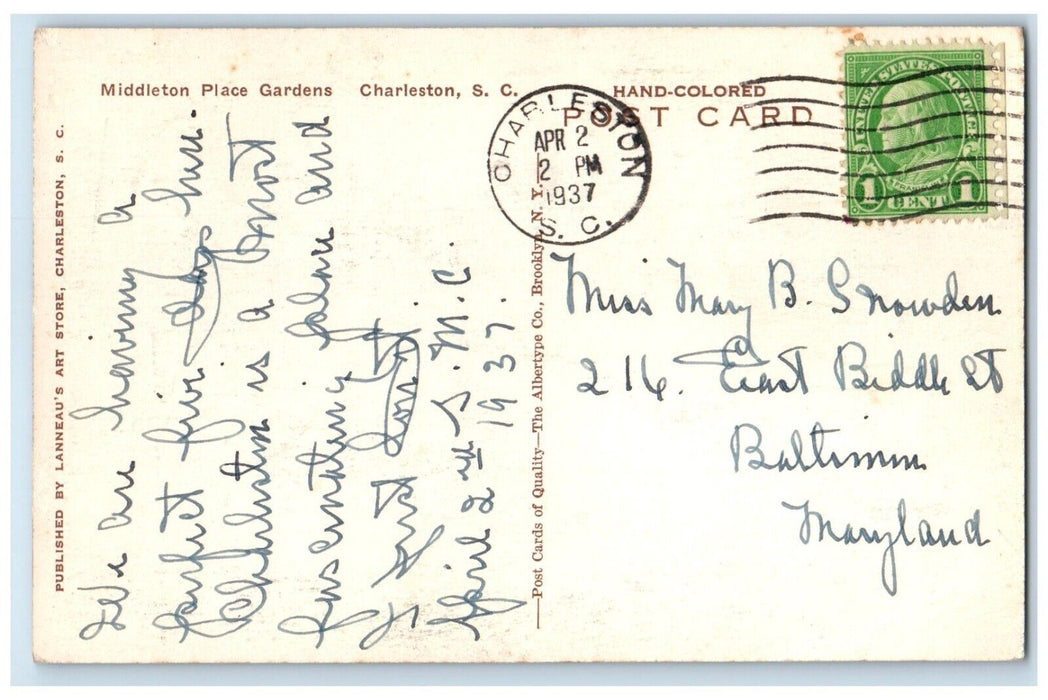 Middleton Place Gardens Charleston, S. C.
HAND-COLORED
POST CARD
PUBLISHED BY LANNEAU'S ART STORE, CHARLESTON, S. C.
—Post Cards of Quality—The Albertype Co., Brooklyn, N. Y.
CHARLESTON
APR 2
2 PM
1937
S. C.
UNITED STATES POSTAGE
FRANKLIN
1 CENT 1
We are having a
perfect five days here.
Charleston is a most
fascinating place and
I just love it.
S. M. C.
April 2nd 1937.
Miss Mary B. Snowden
216. East Biddle St
Baltimore
Maryland